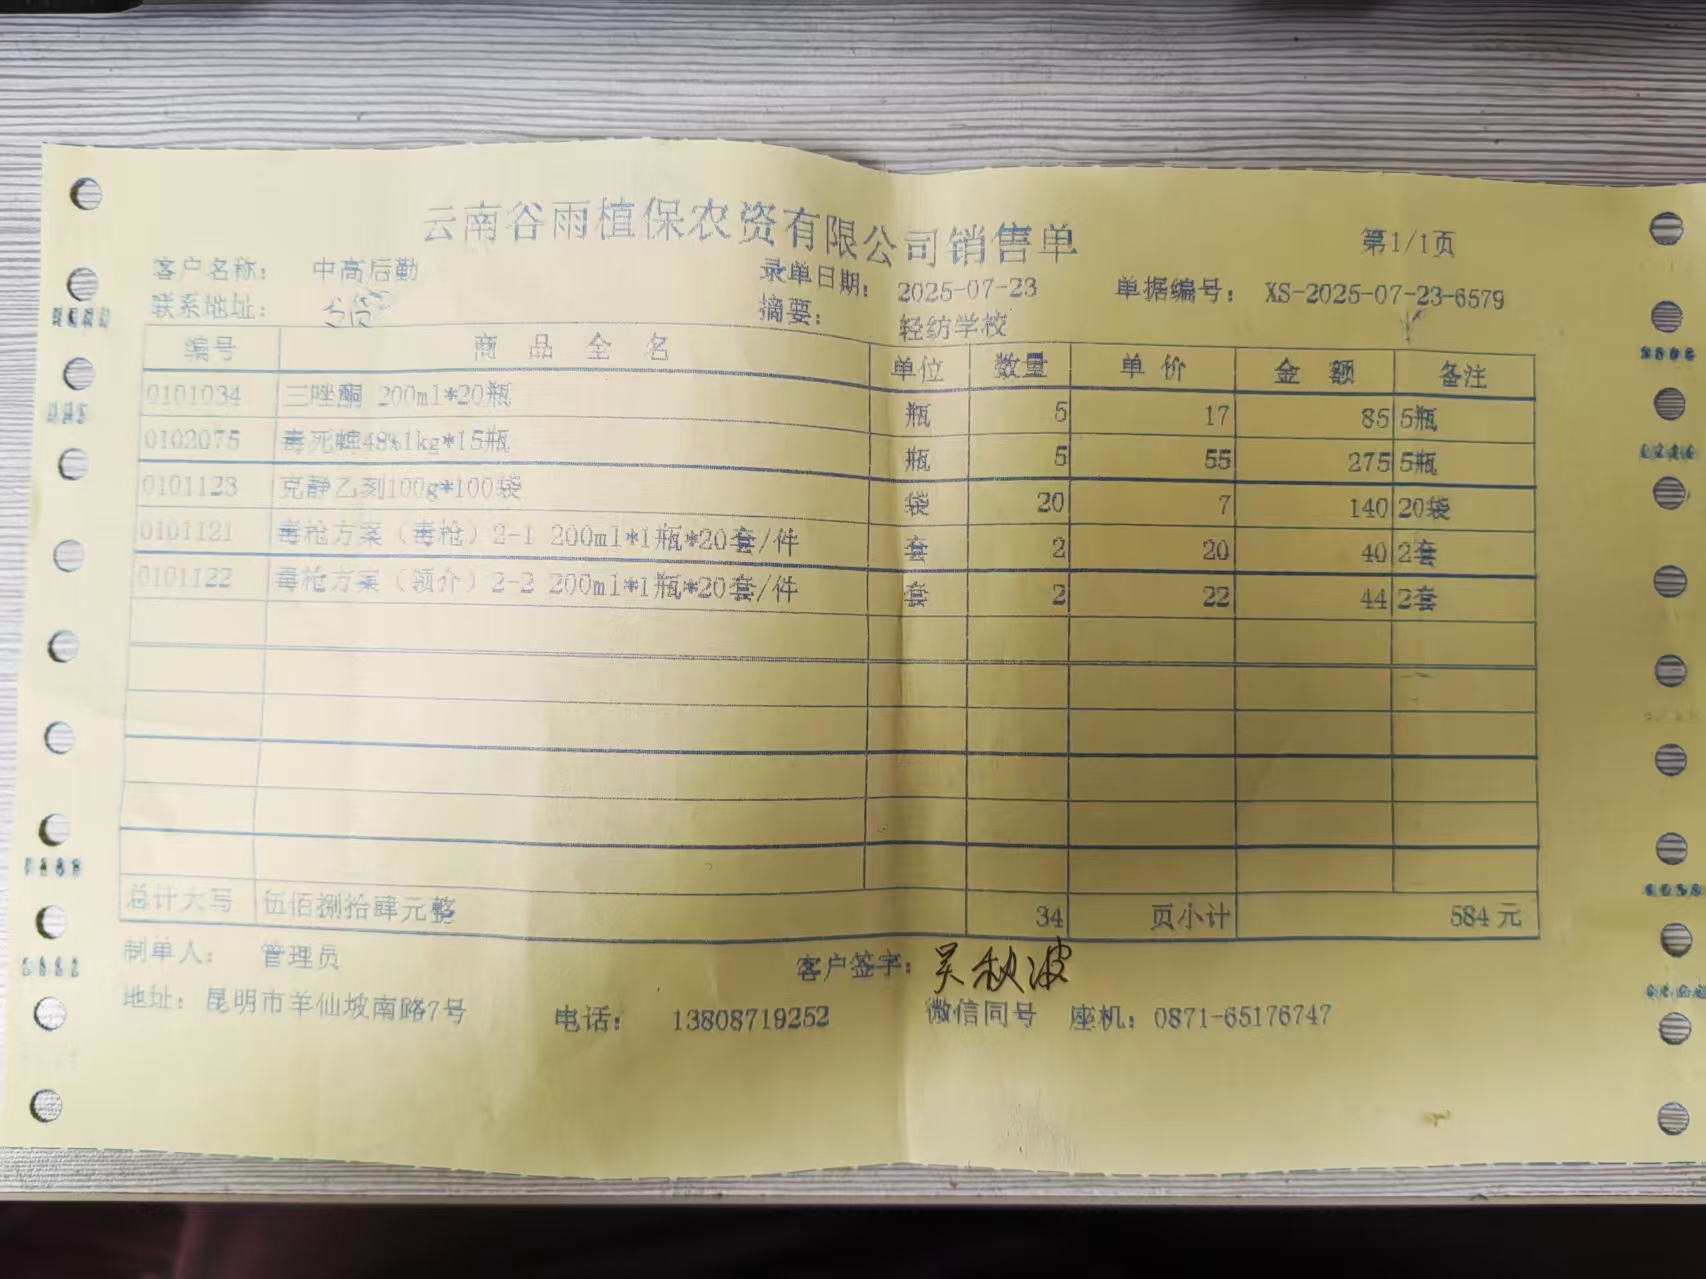 云南谷雨植保农资有限公司销售单 第1/1页
客户名称： 中高后勤 录单日期： 2025-07-23 单据编号： XS-2025-07-23-6579
联系地址： 摘要： 轻纺学校
编号 商 品 全 名 单位 数量 单 价 金 额 备注
0101034 三唑酮 200ml*20瓶 瓶 5 17 85 5瓶
0102075 毒死蜱48%1kg*15瓶 瓶 5 55 275 5瓶
0101123 克静乙刻100g*100袋 袋 20 7 140 20袋
0101121 毒枪方案（毒枪）2-1 200ml*1瓶*20套/件 套 2 20 40 2套
0101122 毒枪方案（领介）2-2 200ml*1瓶*20套/件 套 2 22 44 2套
总计大写 伍佰捌拾肆元整 34 页小计 584 元
制单人： 管理员 客户签字： 吴秋波
地址： 昆明市羊仙坡南路7号 电话： 13808719252 微信同号 座机：0871-65176747